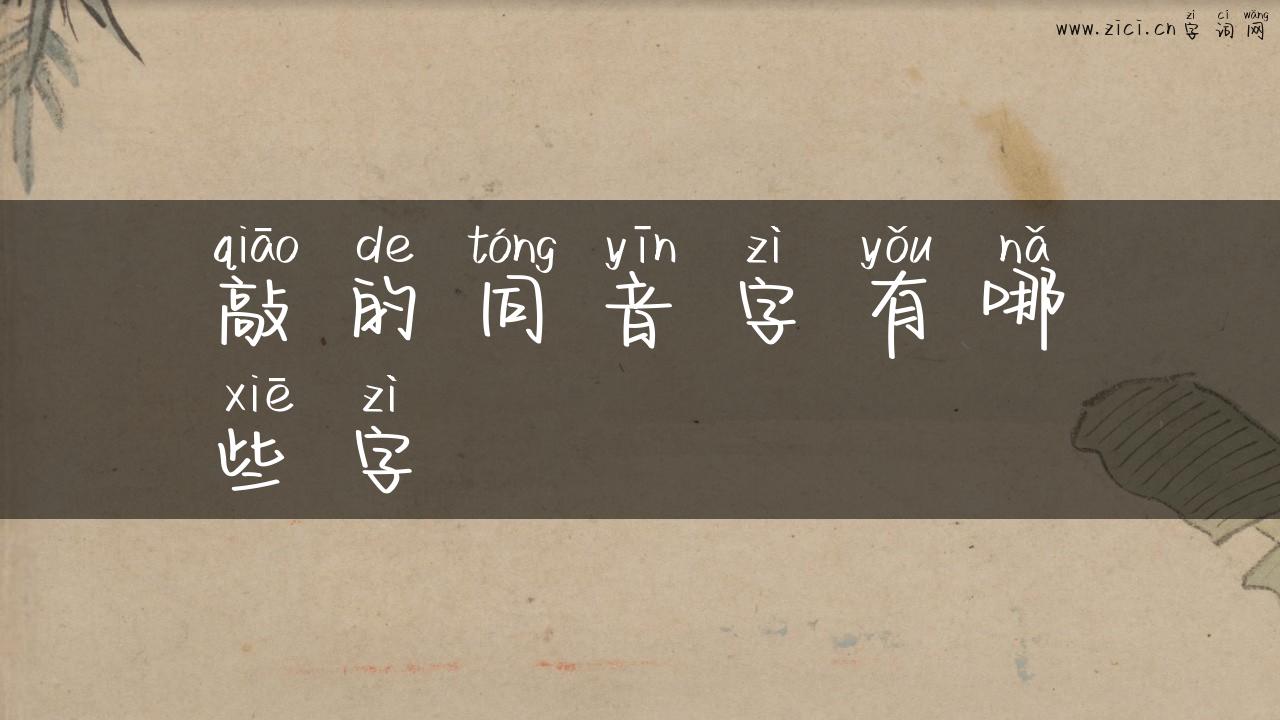 zì cí wǎng
www.zici.cn 字 词 网
qiāo de tóng yīn zì yǒu nǎ
敲 的 同 音 字 有 哪
xiē zì
些 字